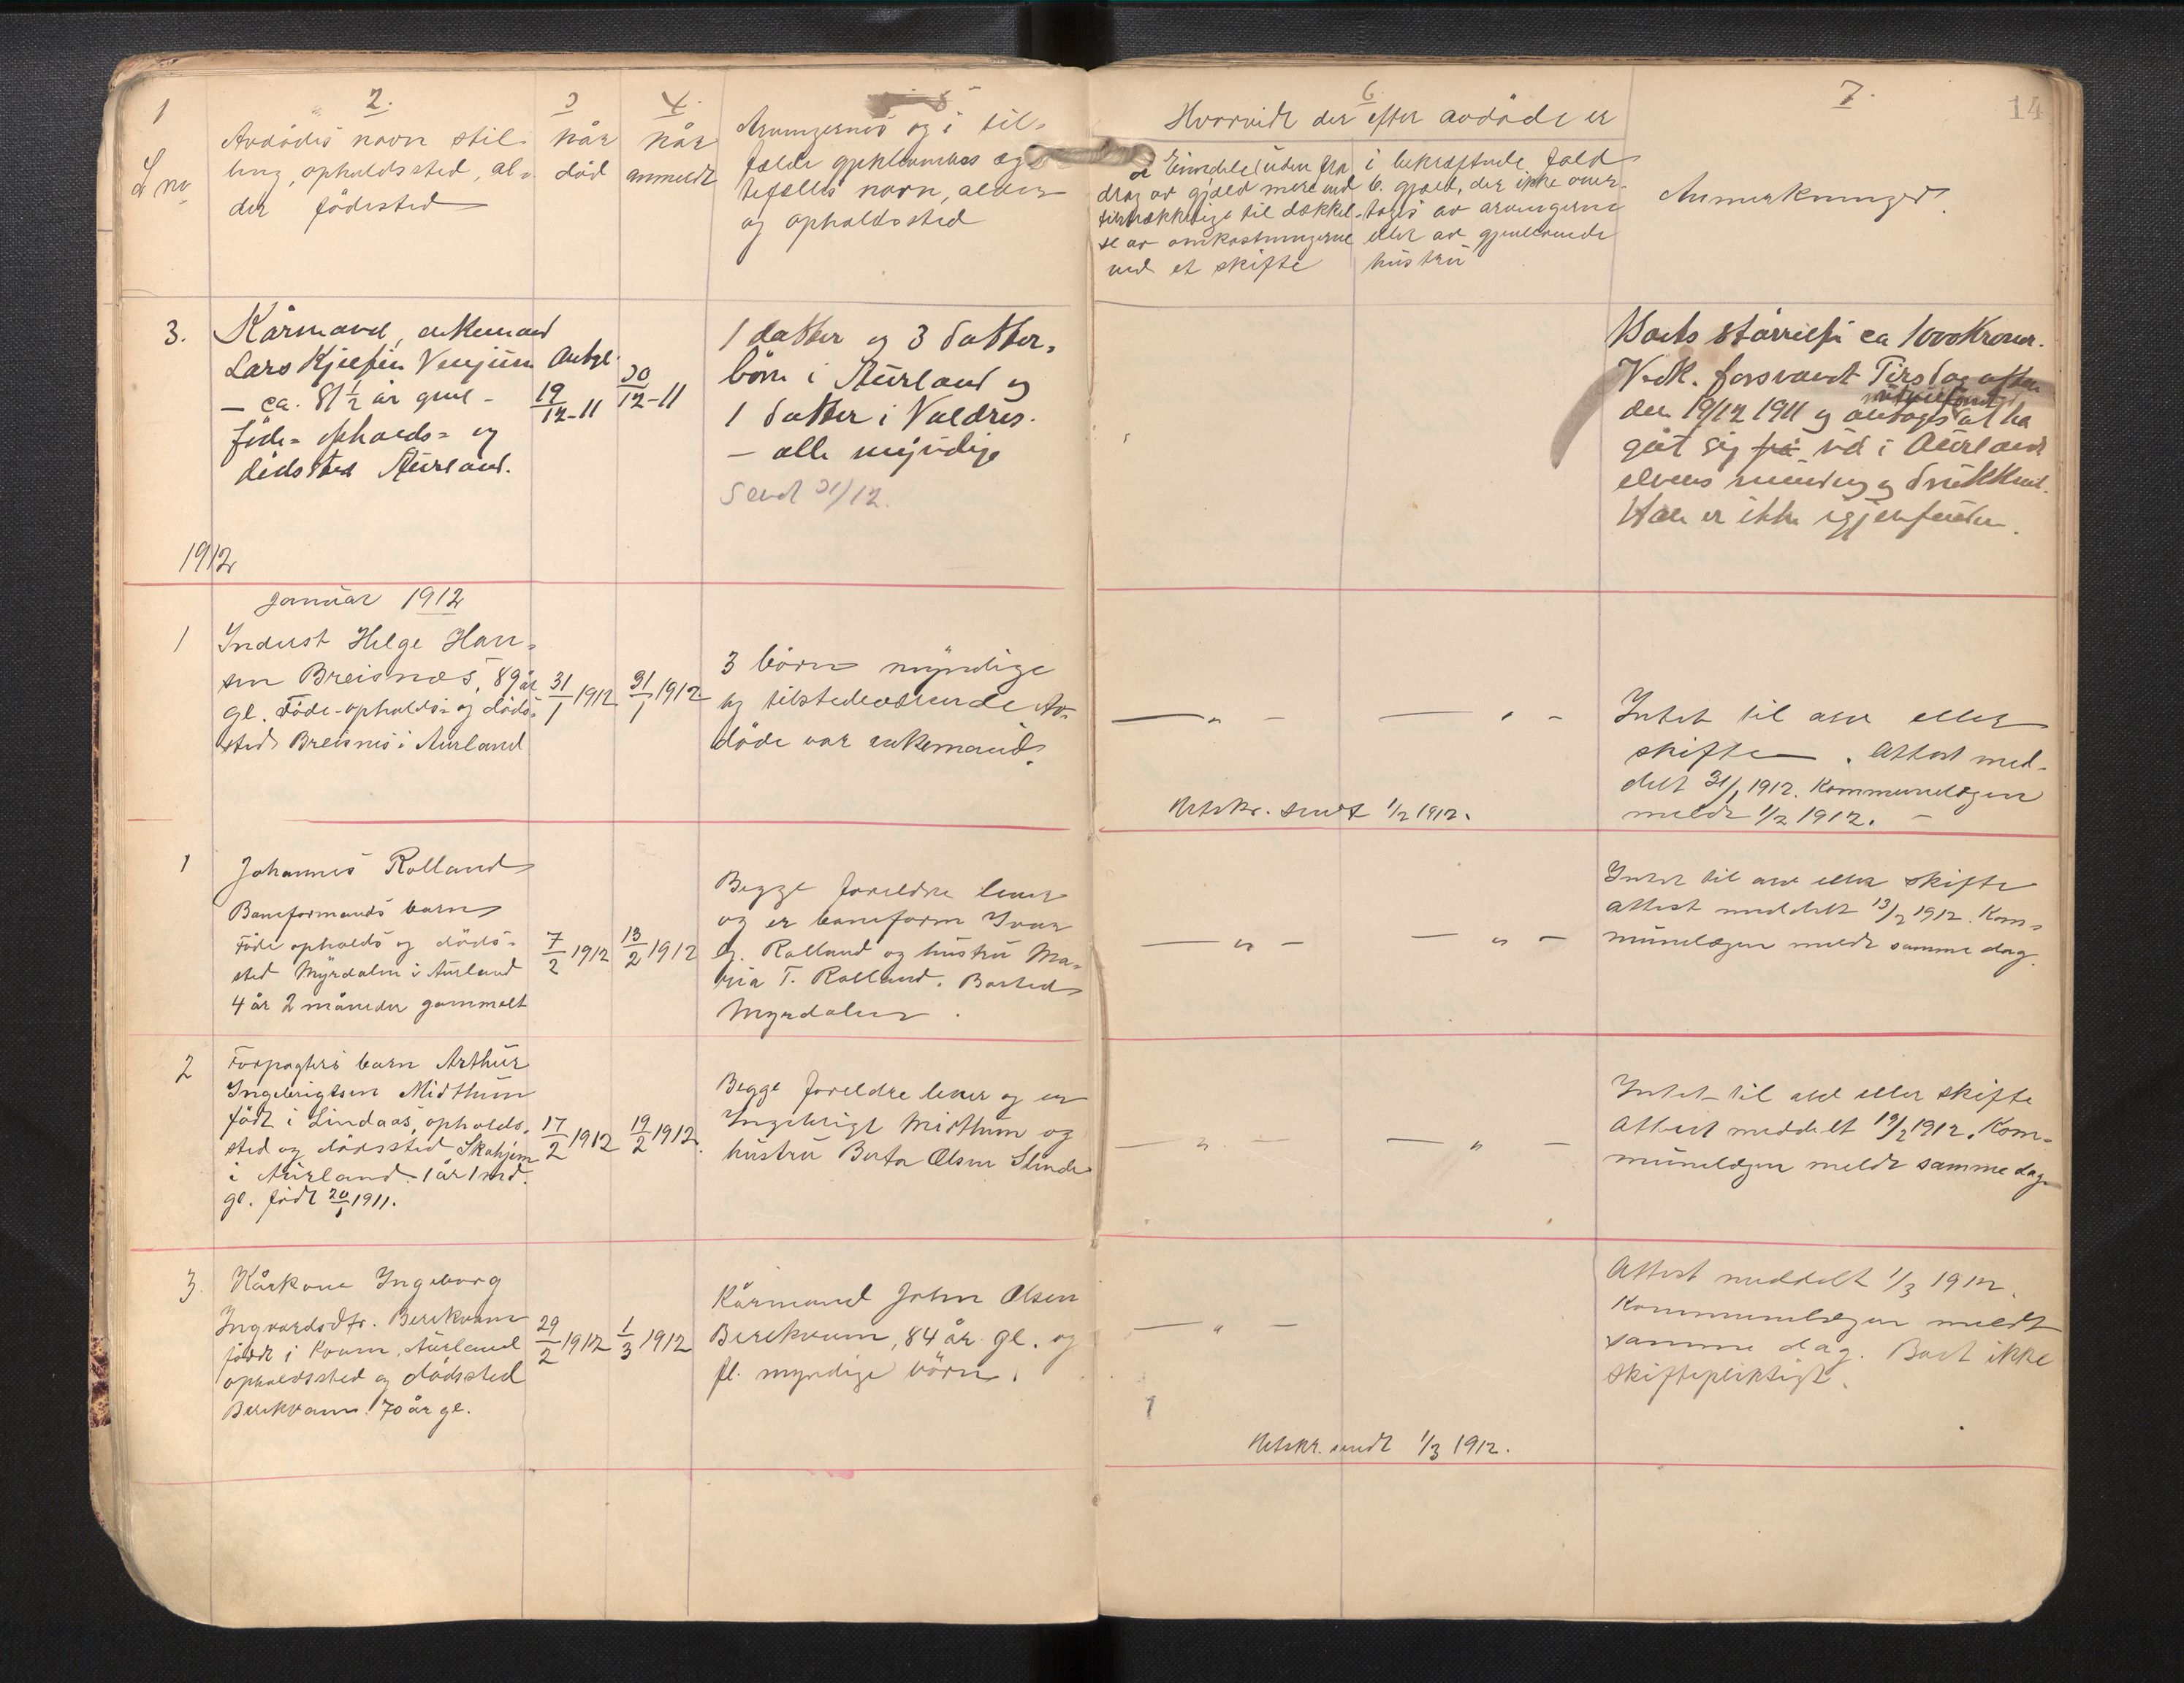 1
L no
2.
Avdödes navn stil-
ling, opholdssted, al-
der födested
3
Når
död
4.
Når
anmeldt
5
Arvingernes og i til-
fælde gjenlevendes æg-
tefælles navn, alder
og opholdssted
6.
Hvorvidt der efter avdöde er
a. Eiendele (uden fra
drag av gjæld mere end
tilstrækkelige til dækkel-
se av omkostningerne
ved et skifte
i bekræftende fald
b. gjæld, der ikke over-
tages av arvingerne
eller av gjenlevende
hustru
7.
Anmerkninger.
14
3.
Kårmand, enkemand
Lars Kjelsen Venjum
- ca. 81½ år gml -
föde- opholds- og
dödssted Aurland.
Antgl.
19/12-11
30/12-11
1 datter og 3 datter-
börn i Aurland og
1 datter i Valdres.
- alle myndige
Sendt 31/12.
Boets störrelse ca 1000 Kroner.
Vedk. forsvandt Tirsdag aften
den 19/12 1911 og antages at ha
gåt sig ud i Aurland
elvens munding og druknet.
Han er ikke igjenfunden.
1912
Januar 1912
1
Inderst Helge Han-
sen Breisnes, 89 år
gl. Föde-opholds- og döds-
sted Breisnes i Aurland
31/1 1912
31/1 1912
3 börn myndige
og tilstedeværende Av-
döde var enkemand.
— " —
— " —
Utskr. sendt 1/2 1912.
Intet til arv eller
skifte. Attest med-
delt 31/1 1912. Kommunelægen
meldt 1/2 1912. -
1
Johannes Rolland
Baneformands barn
Föde opholds og döds-
sted Myrdalen i Aurland
4 år 2 måneder gammelt
7/2 1912
13/2 1912
Begge foreldre lever
og er baneform Ivar
Rolland og hustru Ma-
ria T. Rolland. Bosted
Myrdalen.
— " —
— " —
Intet til arv eller skifte
Attest meddelt 13/2 1912. Kom-
munelægen meldt samme dag.
2
Forpagters barn Arthur
Ingebrigtsen Midthun
födt i Lindaas, opholds-
sted og dödssted Skahjem
i Aurland. 1 år 1 md.
gl. födt 20/1 1911.
17/2 1912
19/2 1912.
Begge foreldre lever og er
Ingebrigt Midthun og
hustru Berta Olsen Slinde
— " —
— " —
Intet til arv eller skifte
Attest meddelt 19/2 1912. Kom-
munelægen meldt samme dag.
3.
Kårkone Ingeborg
Ingvardsdtr. Berekvam
födt i Kvam, Aurland
opholdssted og dödssted
Berekvam. 70 år gl.
29/2 1912
1/3 1912
Kårmand John Olsen
Berekvam, 84 år gl. og
fl. myndige börn.
— " —
Utskr. sendt 1/3 1912.
Attest meddelt 1/3 1912.
Kommunelægen meldt
samme dag. Boet ikke
skiftepliktigt.